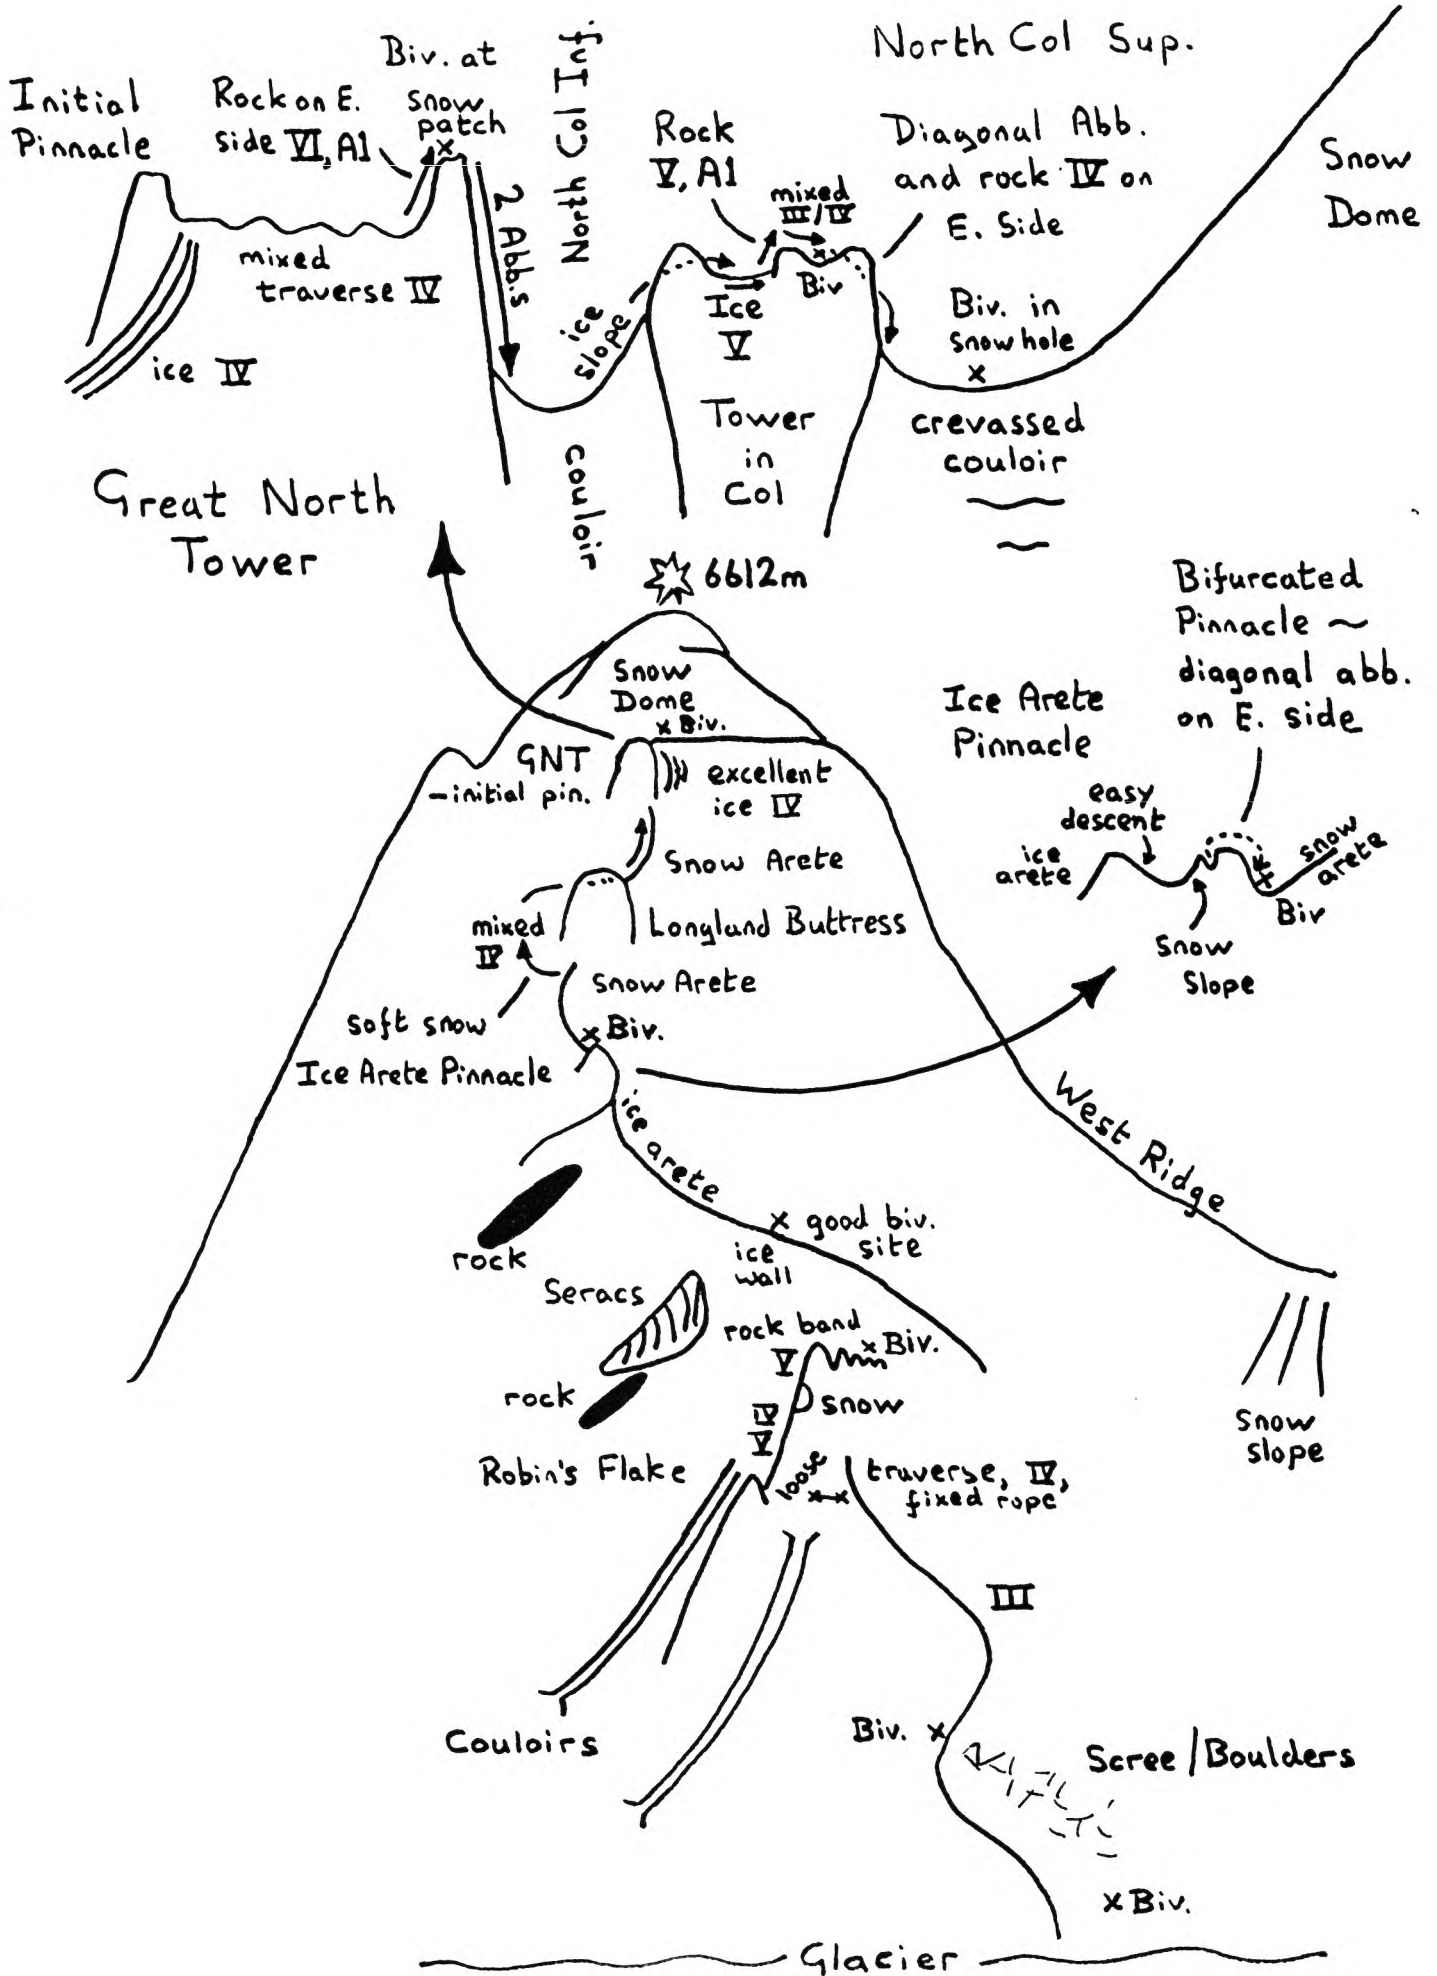 North Col Sup.
Biv. at
snow
patch
North Col Inf.
Initial
Pinnacle
Rock on E.
side VI, A1
Rock
V, A1
mixed
III/IV
Diagonal Abb.
and rock IV on
E. Side
Snow
Dome
2 Abb.s
mixed
traverse IV
ice IV
ice
slope
Ice
V
Biv
Biv. in
snow hole
Tower
in
Col
crevassed
couloir
couloir
Great North
Tower
6612m
Bifurcated
Pinnacle ~
diagonal abb.
on E. side
Snow
Dome
x Biv.
Ice Arete
Pinnacle
GNT
- initial pin.
excellent
ice IV
easy
descent
ice
arete
snow
arete
Biv
Snow
Slope
Snow Arete
mixed
IV
Longland Buttress
Snow Arete
soft snow
x Biv.
Ice Arete Pinnacle
ice arete
West Ridge
rock
x good biv.
site
ice
wall
Seracs
rock band
V
x Biv.
rock
IV
V
snow
Snow
slope
Robin's Flake
loose
traverse, IV,
fixed rope
III
Couloirs
Biv. x
Scree/Boulders
x Biv.
Glacier